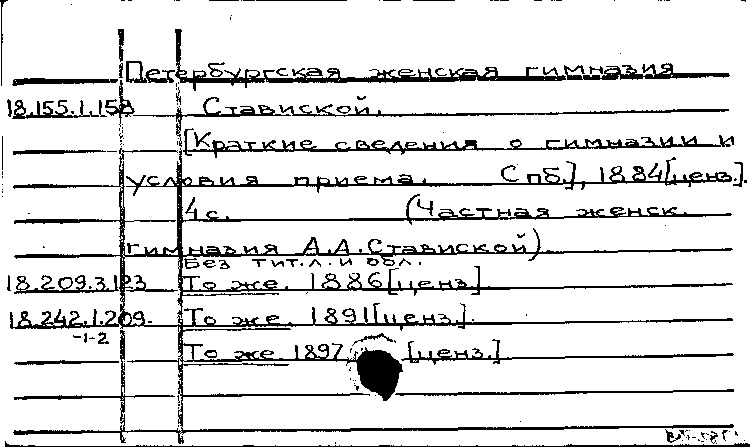 Петербургская женская гимназия
18.155.1.158 Ставиской.
[Краткие сведения о гимназии и
условия приема. Спб.], 1884[ценз.].
4 с. (Частная женск.
гимназия А.А.Ставиской).
Без тит.л. и обл.
18.209.3.123 То же. 1886[ценз.]
18.242.1.209. То же. 1891[ценз.].
-1-2
То же 1897 [ценз.]